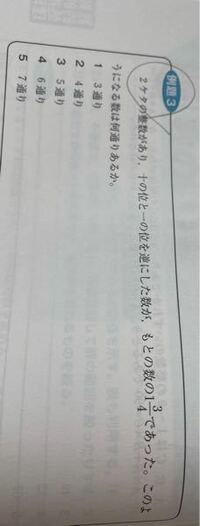 例題 3
2ケタの整数があり、十の位と一の位を逆にした数が、もとの数の1 3/4であった。このよ
うになる数は何通りあるか。
1 3通り
2 4通り
3 5通り
4 6通り
5 7通り